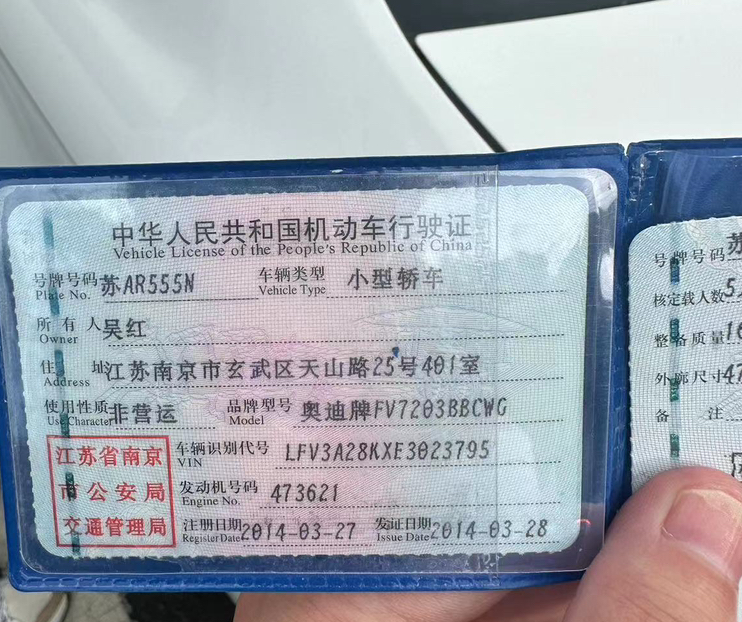 中华人民共和国机动车行驶证
Vehicle License of the People's Republic of China
号牌号码 苏AR555N 车辆类型 小型轿车
Plate No. Vehicle Type
所有人 吴红
Owner
住 址 江苏南京市玄武区天山路25号401室
Address
使用性质 非营运 品牌型号 奥迪牌FV7203BBCWG
Use Character Model
江苏省南京
市公安局
交通管理局
车辆识别代号 LFV3A28KXE3023795
VIN
发动机号码 473621
Engine No.
注册日期 2014-03-27 发证日期 2014-03-28
Register Date Issue Date
号牌号码 苏
核定载人数 5
整备质量
外廓尺寸 47
备 注